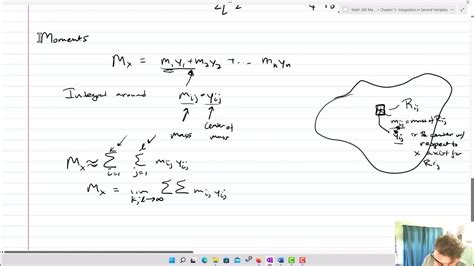 Math 280 Ma... • Chapter 5 - Integration in Several Variables
Moments
Mx = m₁y₁ + m₂y₂ + ... mₙyₙ
Integral around
mᵢⱼ · yᵢⱼ
mass
center of
mass
Mx ≈ Σᵢ₌₁ᵏ Σⱼ₌₁ˡ mᵢⱼ yᵢⱼ
Mx = lim k,l→∞ ΣΣ mᵢⱼ yᵢⱼ
Rᵢⱼ
mᵢⱼ = mass of Rᵢⱼ
yᵢⱼ is the center w/
respect to
x axis for
Rᵢⱼ